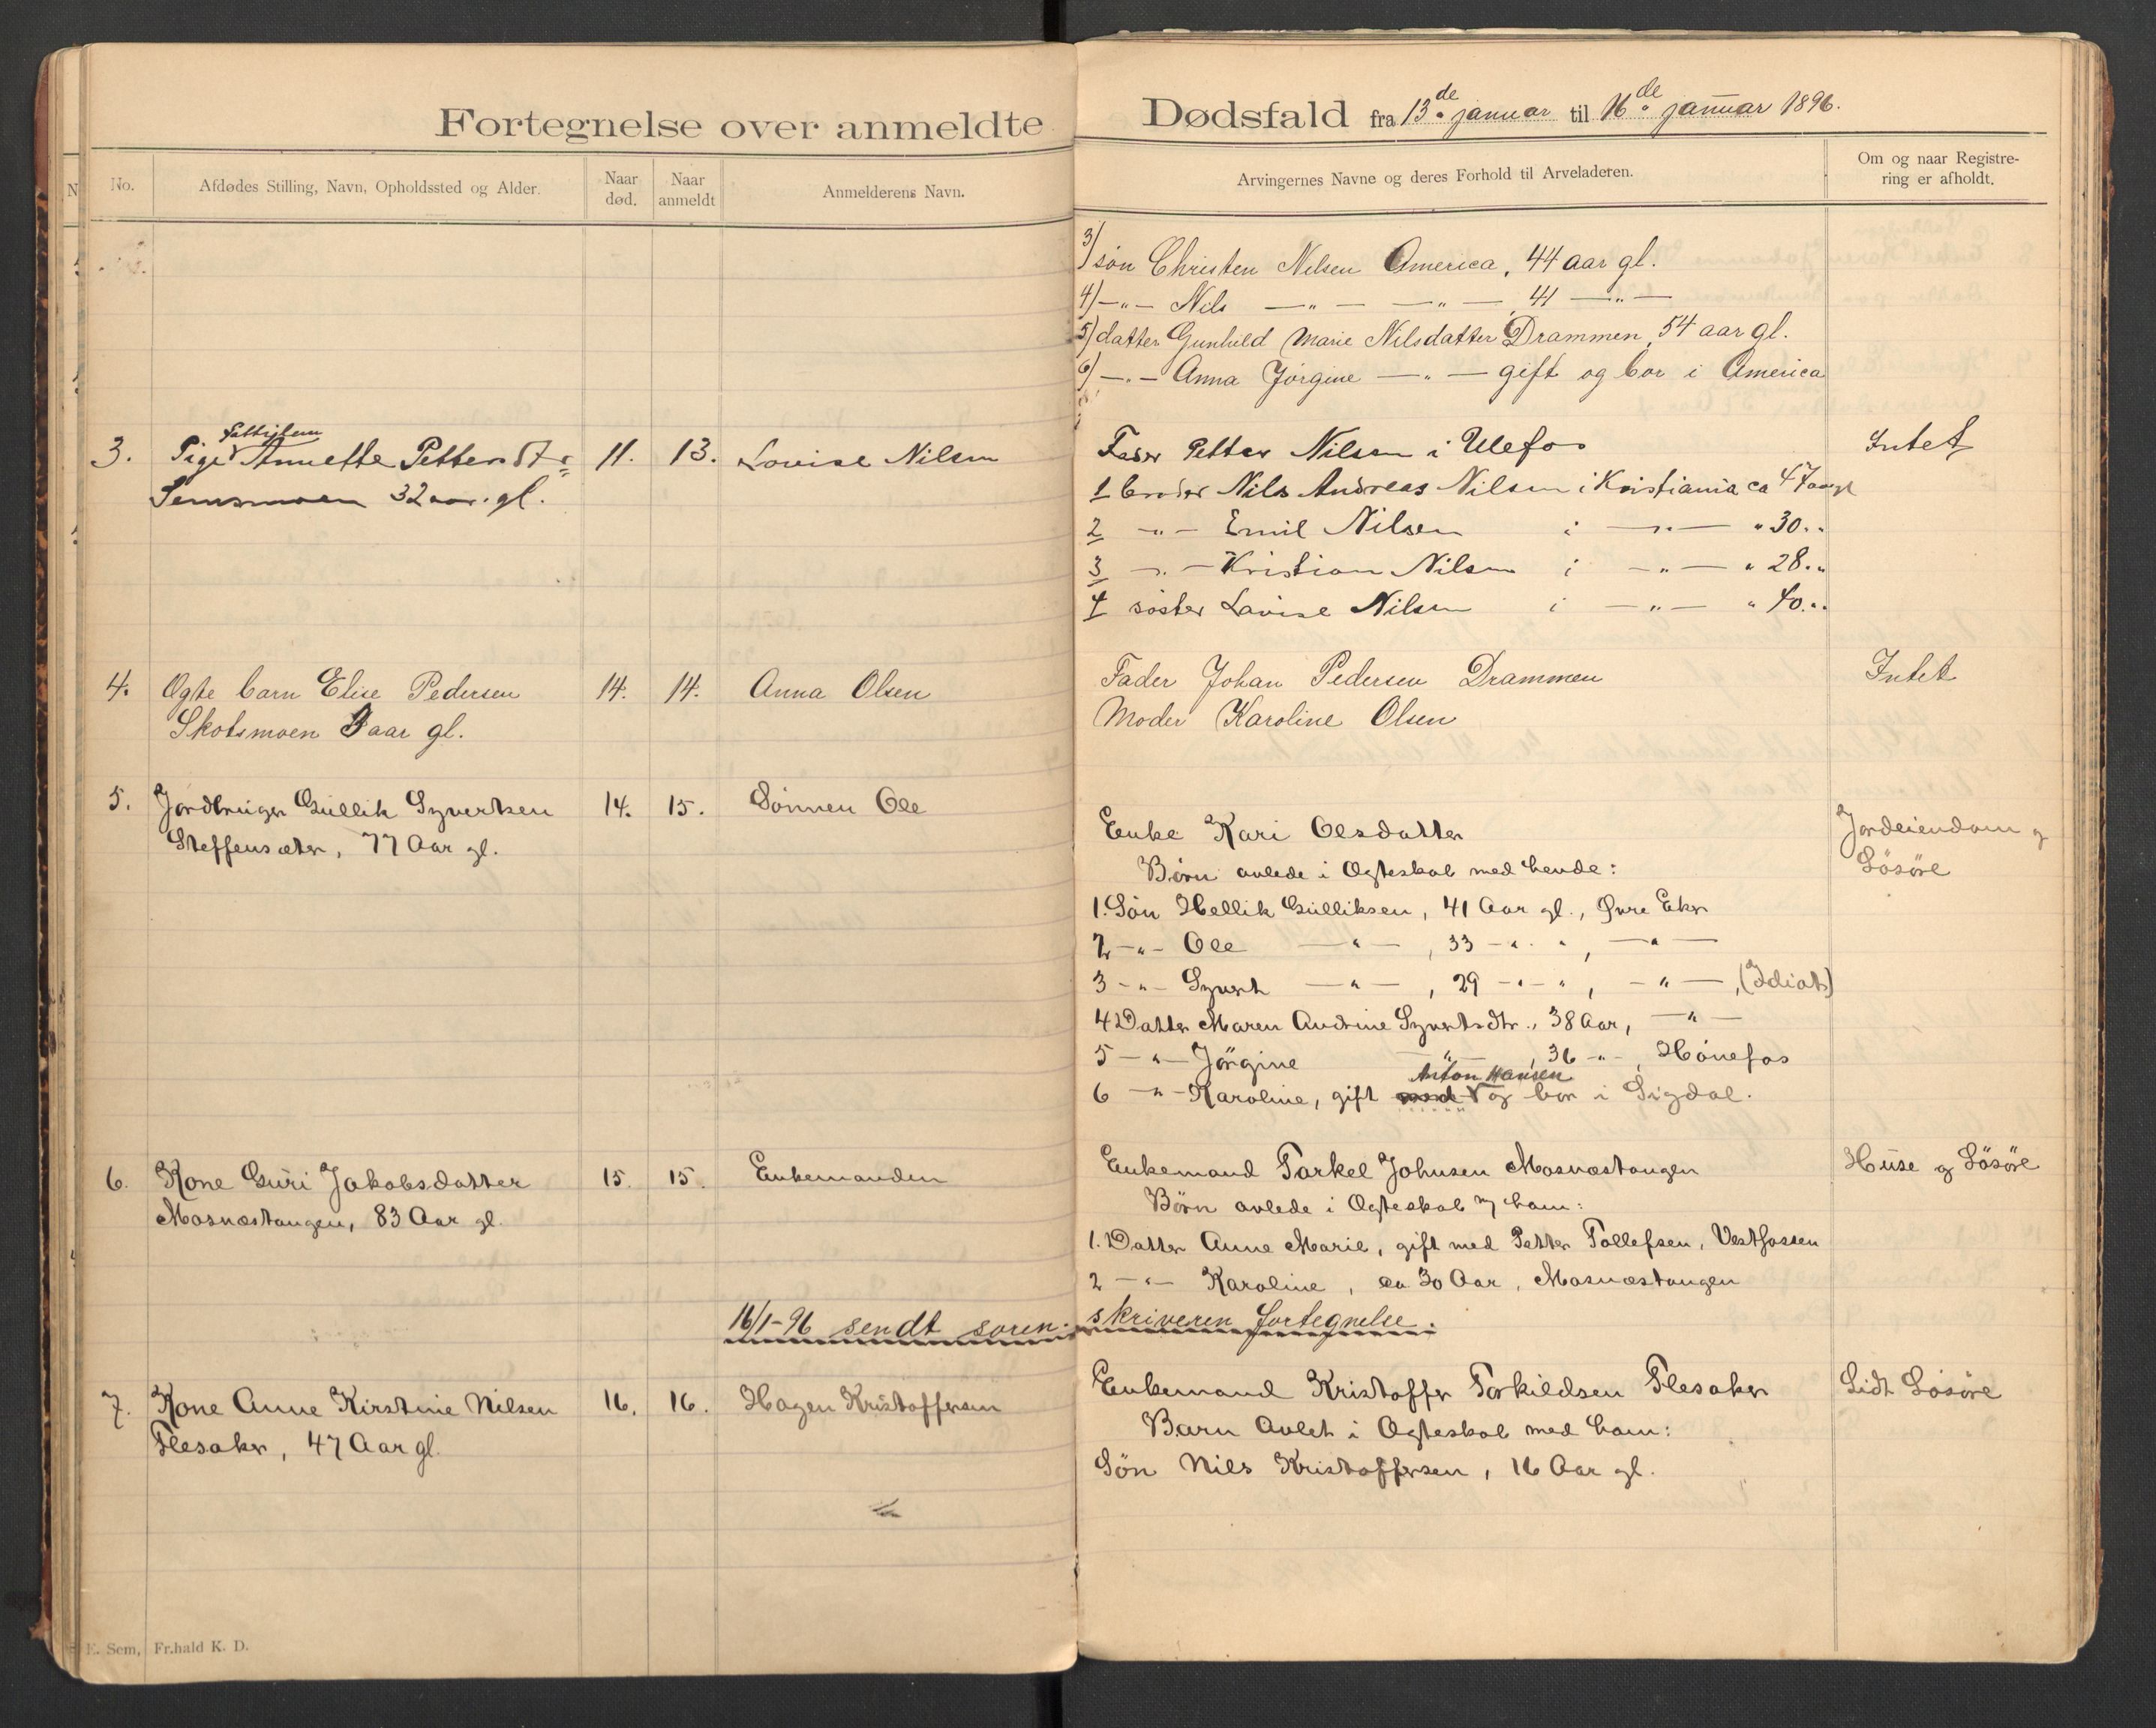 Fortegnelse over anmeldte Dødsfald fra 13de januar til 16de januar 1896.
No.
Afdødes Stilling, Navn, Opholdssted og Alder.
Naar død.
Naar anmeldt
Anmelderens Navn.
Arvingernes Navne og deres Forhold til Arveladeren.
Om og naar Registre-
ring er afholdt.
3) søn Christen Nilsen America, 44 aar gl.
4) —"— Nils —"— —"— 41 —"—
5) datter Gunhild Marie Nilsdatter Drammen, 54 aar gl.
6) —"— Anna Jørgine —"— gift og bor i America
3. Pige fattiglem Annette Petters dtr 11. 13. Lovise Nilsen
Semsmoen 32 aar. gl.
Fader Petter Nilsen i Ulefos Intet
1 broder Nils Andreas Nilsen i Kristiania ca 47 aar gl
2 —"— Emil Nilsen i —"— " 30 . "
3 —"— Kristian Nilsen i —"— " 28 . "
4 søster Lovise Nilsen i —"— " 40 . "
4. Ægte barn Elise Pedersen 14. 14. Anna Olsen
Skotsmoen 3 aar gl.
Fader Johan Pedersen Drammen Intet
Moder Karoline Olsen
5. Jordbruger Gullik Syvertsen 14. 15. Sønnen Ole
Steffensæter, 77 Aar gl.
Enke Kari Olsdatter Jordeiendom og
Børn avlede i Ægteskab med hende: Løsøre
1. Søn Hellik Gulliksen, 41 Aar gl., Øvre Eker
2 —"— Ole —"— , 33 —"— " , —"—
3 —"— Syvert —"— , 29 —"— " , —"— , (Idiot)
4 Datter Maren Andrine Syvertsdtr., 38 Aar, —"—
5 —"— Jørgine —"— , 36 —"— , Hønefos
Anton Hansen
6 —"— Karoline, gift med og bor i Sigdal.
6. Kone Guri Jakobsdatter 15. 15. Enkemanden
Mosnæstangen, 83 Aar gl.
Enkemand Torkel Johnsen Mosnæstangen Huse og Løsøre
Børn avlede i Ægteskab m ham:
1. Datter Anne Marie, gift med Petter Tollefsen, Vestfossen
2 —"— Karoline, ca 30 Aar, Mosnæstangen
16/1-96 sendt soren- skriveren fortegnelse.
7. Kone Anne Kirstine Nilsen 16. 16. Hagen Kristoffersen
Flesaker, 47 Aar gl.
Enkemand Kristoffer Torkildsen Flesaker Lidt Løsøre
Barn Avlet i Ægteskab med ham:
Søn Nils Kristoffersen, 16 Aar gl.
E. Sem, Fr.hald K. D.